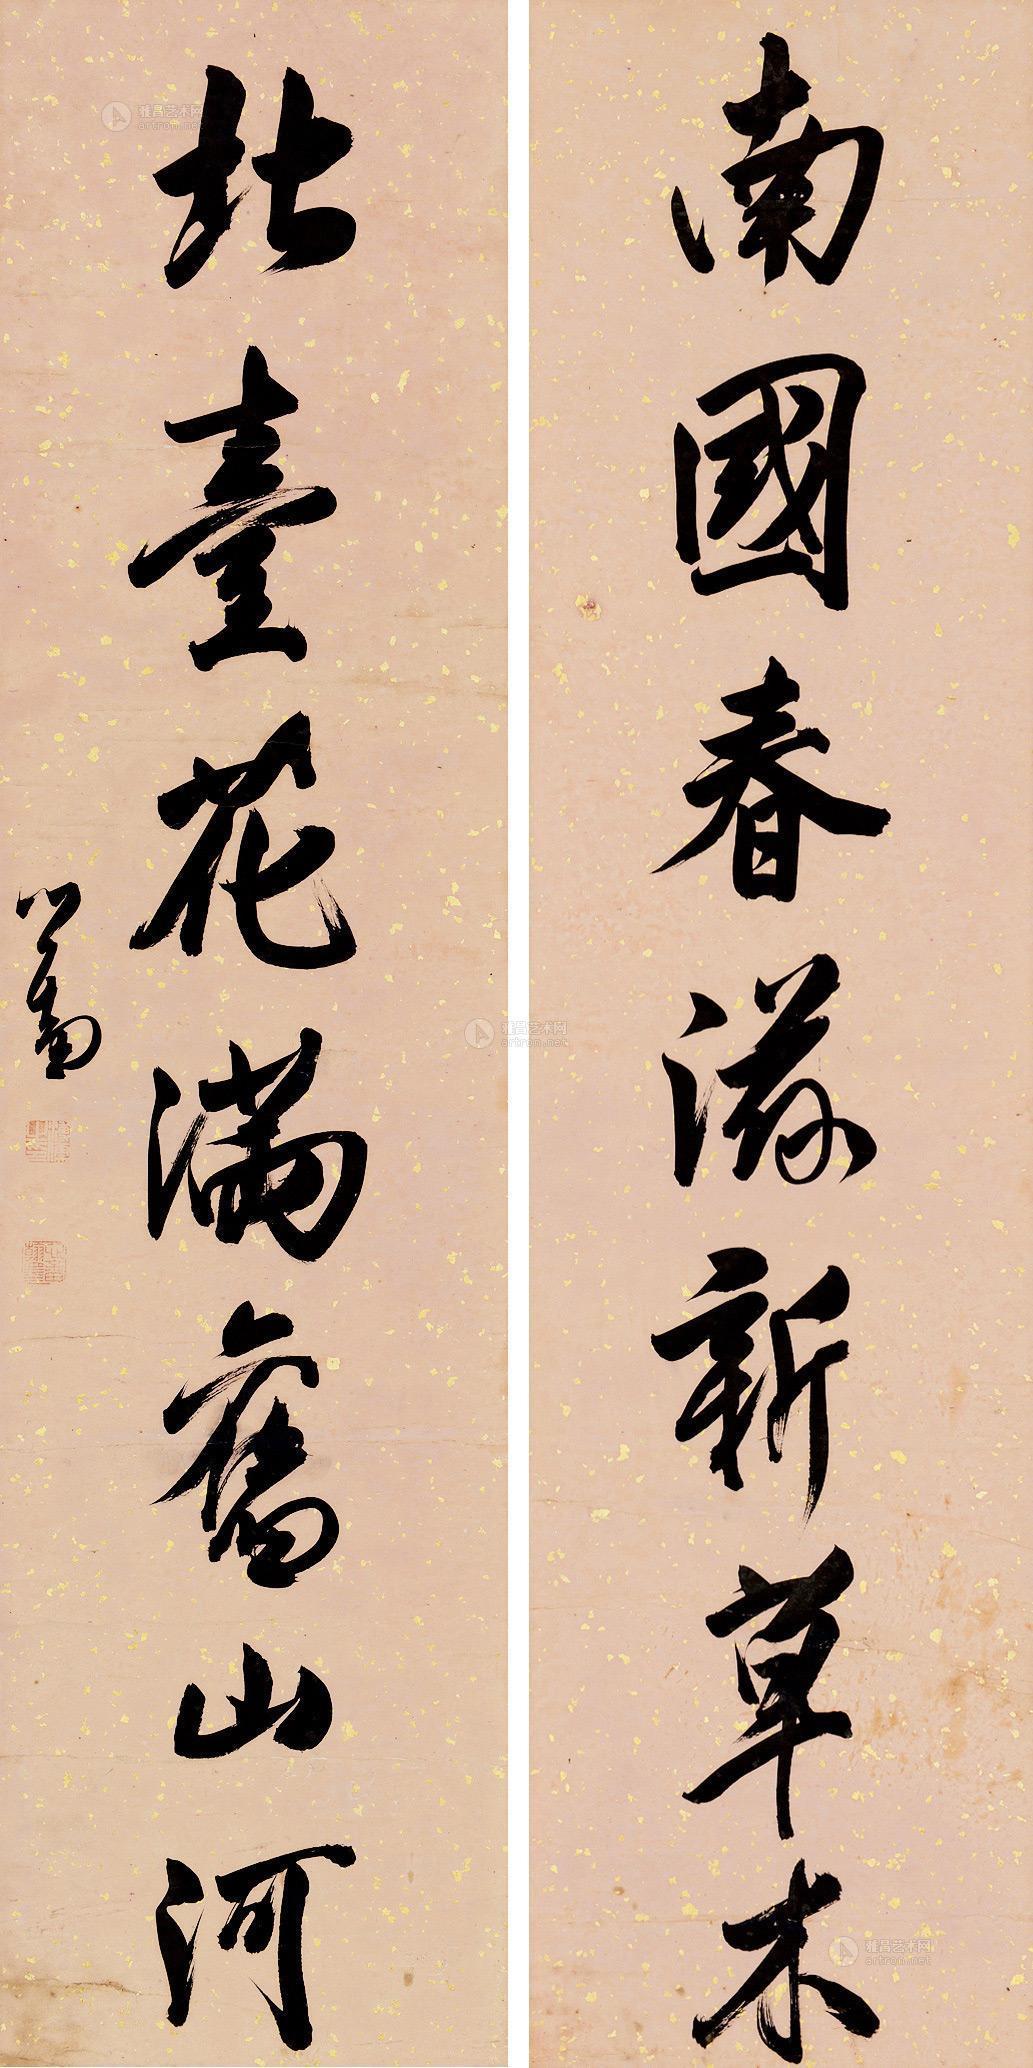 南國春滋新草木
北臺花滿舊山河
心畬
雅昌艺术网
artron.net
雅昌艺术网
artron.net
雅昌艺术网
artron.net